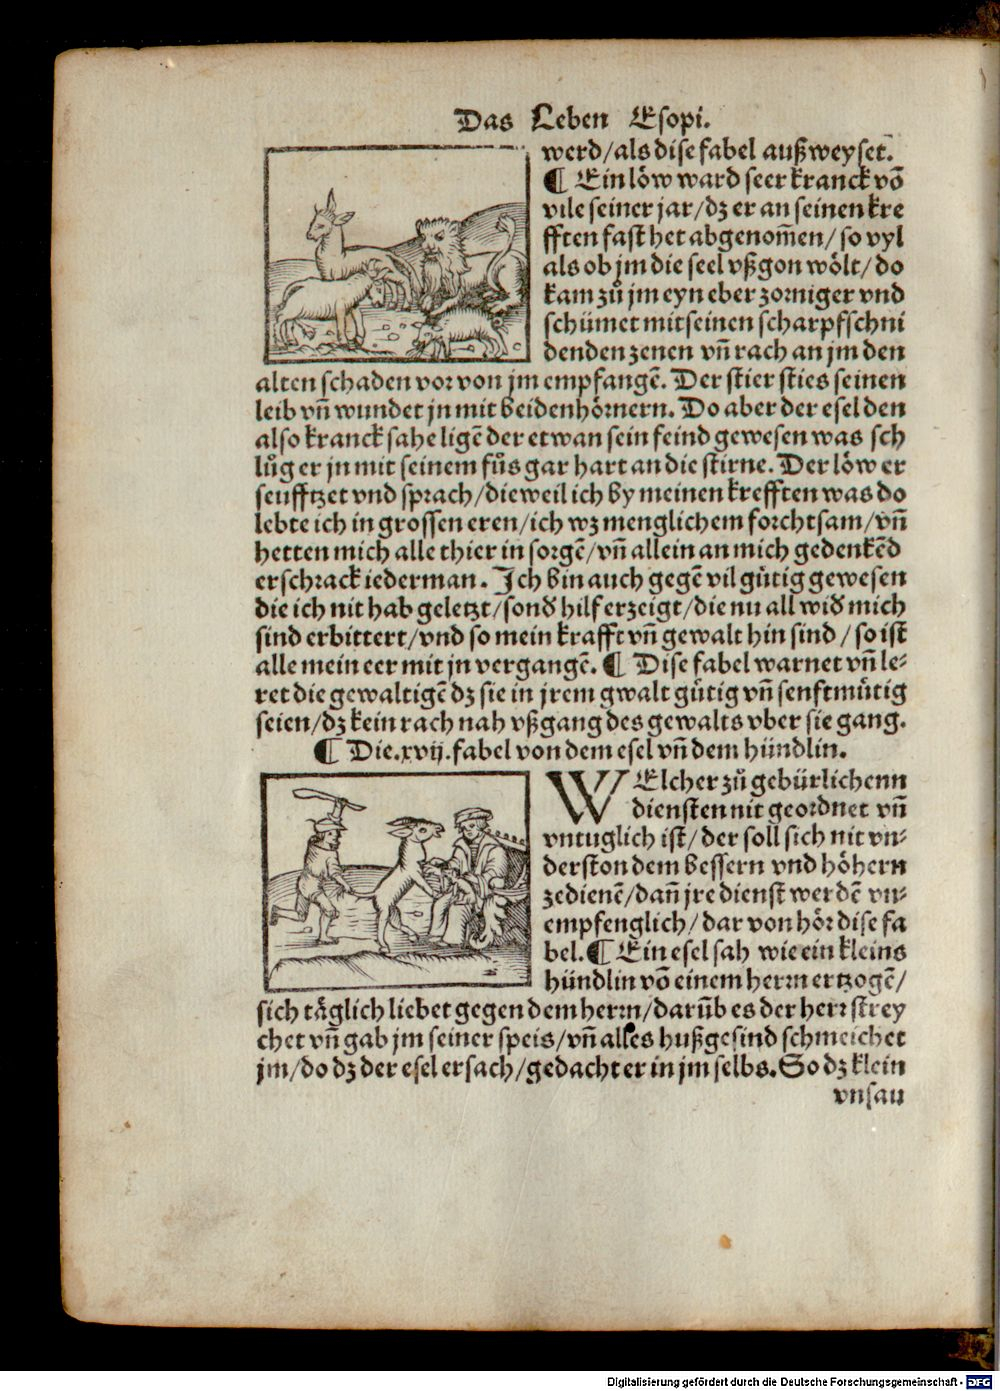 Das Leben Esopi.
werd/als dise fabel außweyset.
¶ Ein löw ward seer kranck võ
vile seiner jar/dz er an seinen kre
fften fast het abgenom̃en/ so vyl
als ob jm die seel vßgon wölt/ do
kam zů jm eyn eber zorniger vnd
schümet mit seinen scharpfschni
denden zenen vñ rach an jm den
alten schaden vor von jm empfangẽ. Der stier sties seinen
leib vñ wundet jn mit beiden hörnern. Do aber der esel den
also kranck sahe ligẽ der etwan sein feind gewesen was sch
lůg er jn mit seinem fůs gar hart an die stirne. Der löw er
seufftzet vnd sprach/dieweil ich by meinen krefften was do
lebte ich in grossen eren/ich wz menglichem forchtsam/vñ
hetten mich alle thier in sorgẽ/vñ allein an mich gedenkẽd
erschrack iederman. Ich bin auch gegẽ vil gütig gewesen
die ich nit hab geletzt/sonđ hilf erzeigt/die nu all wiđ mich
sind erbittert/vnd so mein krafft vñ gewalt hin sind/ so ist
alle mein eer mit jn vergangẽ. ¶ Dise fabel warnet vñ le⸗
ret die gewaltigẽ dz sie in jrem gwalt gütig vñ senftmütig
seien/dz kein rach nah vßgang des gewalts vber sie gang.
¶ Die.xvij.fabel von dem esel vñ dem hündlin.
WElcher zů gebürlichenn
diensten nit geordnet vñ
vntuglich ist/ der soll sich nit vn⸗
derston dem bessern vnd höhern
zedienẽ/dañ jre dienst werdẽ vn⸗
empfenglich/ dar von hör dise fa
bel. ¶ Ein esel sah wie ein kleins
hündlin võ einem herrn ertzogẽ/
sich täglich liebet gegen dem herrn/darũb es der herr strey
chet vñ gab jm seiner speis/vñ alles hußgesind schmeichet
jm/do dz der esel ersach/gedacht er in jm selbs. So dz klein
vnsau
Digitalisierung gefördert durch die Deutsche Forschungsgemeinschaft - DFG